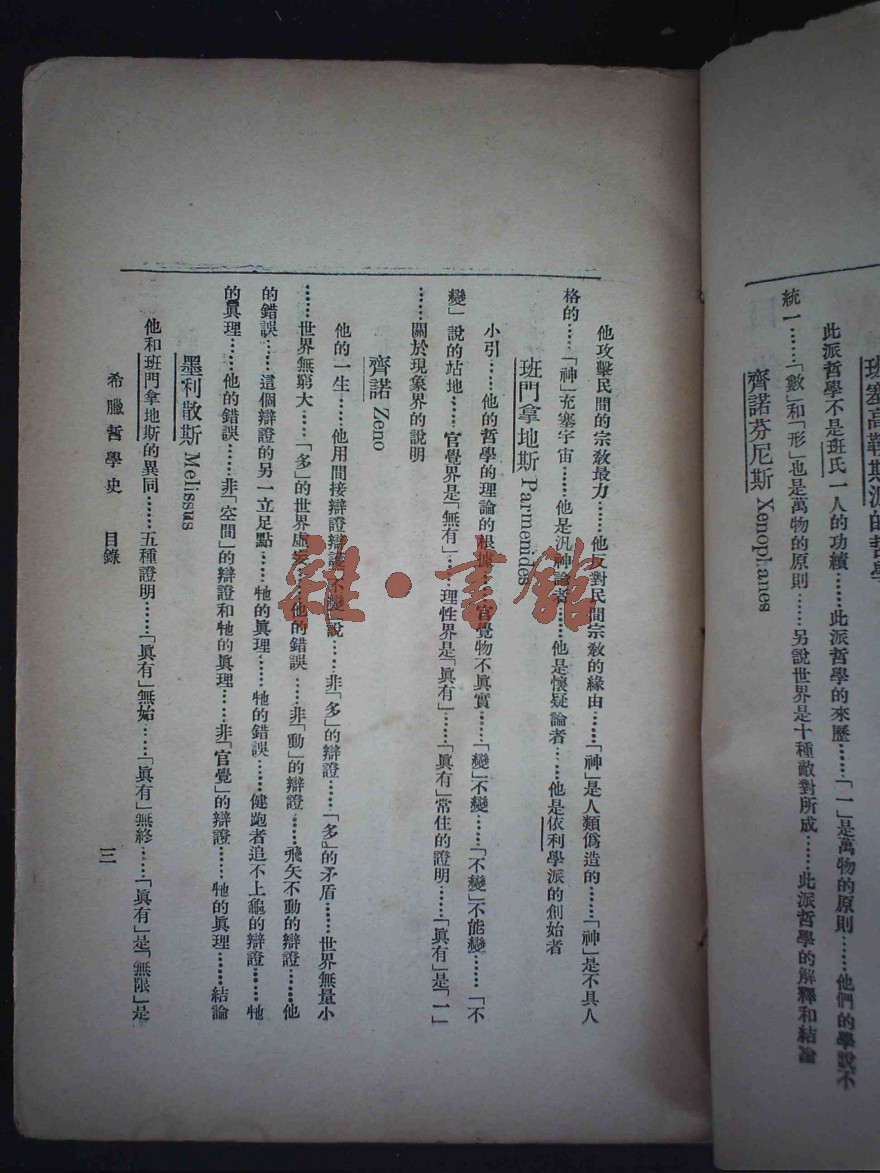 班塞高勒斯派的哲學
此派哲學不是班氏一人的功績……此派哲學的來歷……「一」是萬物的原則……他們的學說不
統一……「數」和「形」也是萬物的原則……另說世界是十種敵對所成……此派哲學的解釋和結論
齊諾芬尼斯 Xenophanes
他攻擊民間的宗教最力……他反對民間宗教的緣由……「神」是人類僞造的……「神」是不具人
格的……「神」充塞宇宙……他是汎神論者……他是懷疑論者……他是依利學派的創始者
班門拿地斯 Parmenides
小引……他的哲學的理論的根據……官覺物不眞實……「變」不變……「不變」不能變……「不
變」說的站地……官覺界是「無有」……理性界是「眞有」……「眞有」常住的證明……「眞有」是「一」
……關於現象界的說明
齊諾 Zeno
他的一生……他用間接辯證辯護「不變」說……非「多」的辯證……「多」的矛盾……世界無量小
……世界無窮大……「多」的世界虛妄……他的錯誤……非「動」的辯證……飛矢不動的辯證……他
的錯誤……這個辯證的另一立足點……牠的眞理……牠的錯誤……健跑者追不上龜的辯證……牠
的眞理……他的錯誤……非「空間」的辯證和牠的眞理……非「官覺」的辯證……牠的眞理……結論
墨利散斯 Melissus
他和班門拿地斯的異同……五種證明……「眞有」無始……「眞有」無終……「眞有」是「無限」是
希臘哲學史 目錄 三
雜·書館